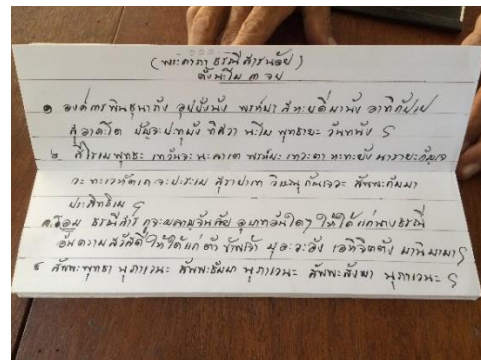 (พระคาถา ธรณีสารน้อย)
ตั้งนะโม ๓ จบ
๑ องค์การพินธุนาถัง อุปปันนัง พรหมมา สหะปติมานัง อาทิกัปเป
สุอาคโต ปัญจะปทุมัง ทิสวา นะโม พุทธายะ วันทนัง ฯ
๒ สิโรเมพุทธะ เทวันจะ นะลาเต พรหมมะ เทวะตา หะทะยัง นารายะกัญเจ
วะ ทะเวหัตเถ จะปะระเม สุราปาเท วิษณุกันเจวะ สัพพะกัมมา
ประสิทธิเม ฯ
๓. โอม ธรณีสาร กูจะผลาญจัญไร อุบาทว์อันใดๆ ให้ได้แก่นางธรณี
อันความสวัสดี ให้ได้แก่ ตัว ข้าพเจ้า พุทธะวะอัง เอหิจิตตัง มานิมามา ฯ
๔ สัพพะพุทธา นุภาเวนะ สัพพะธัมมา นุภาเวนะ สัพพะสังฆา นุภาเวนะ ฯ